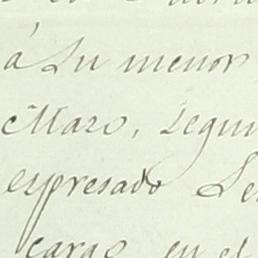 á su menor
Mazo, segui
espresado Se
cargo en el